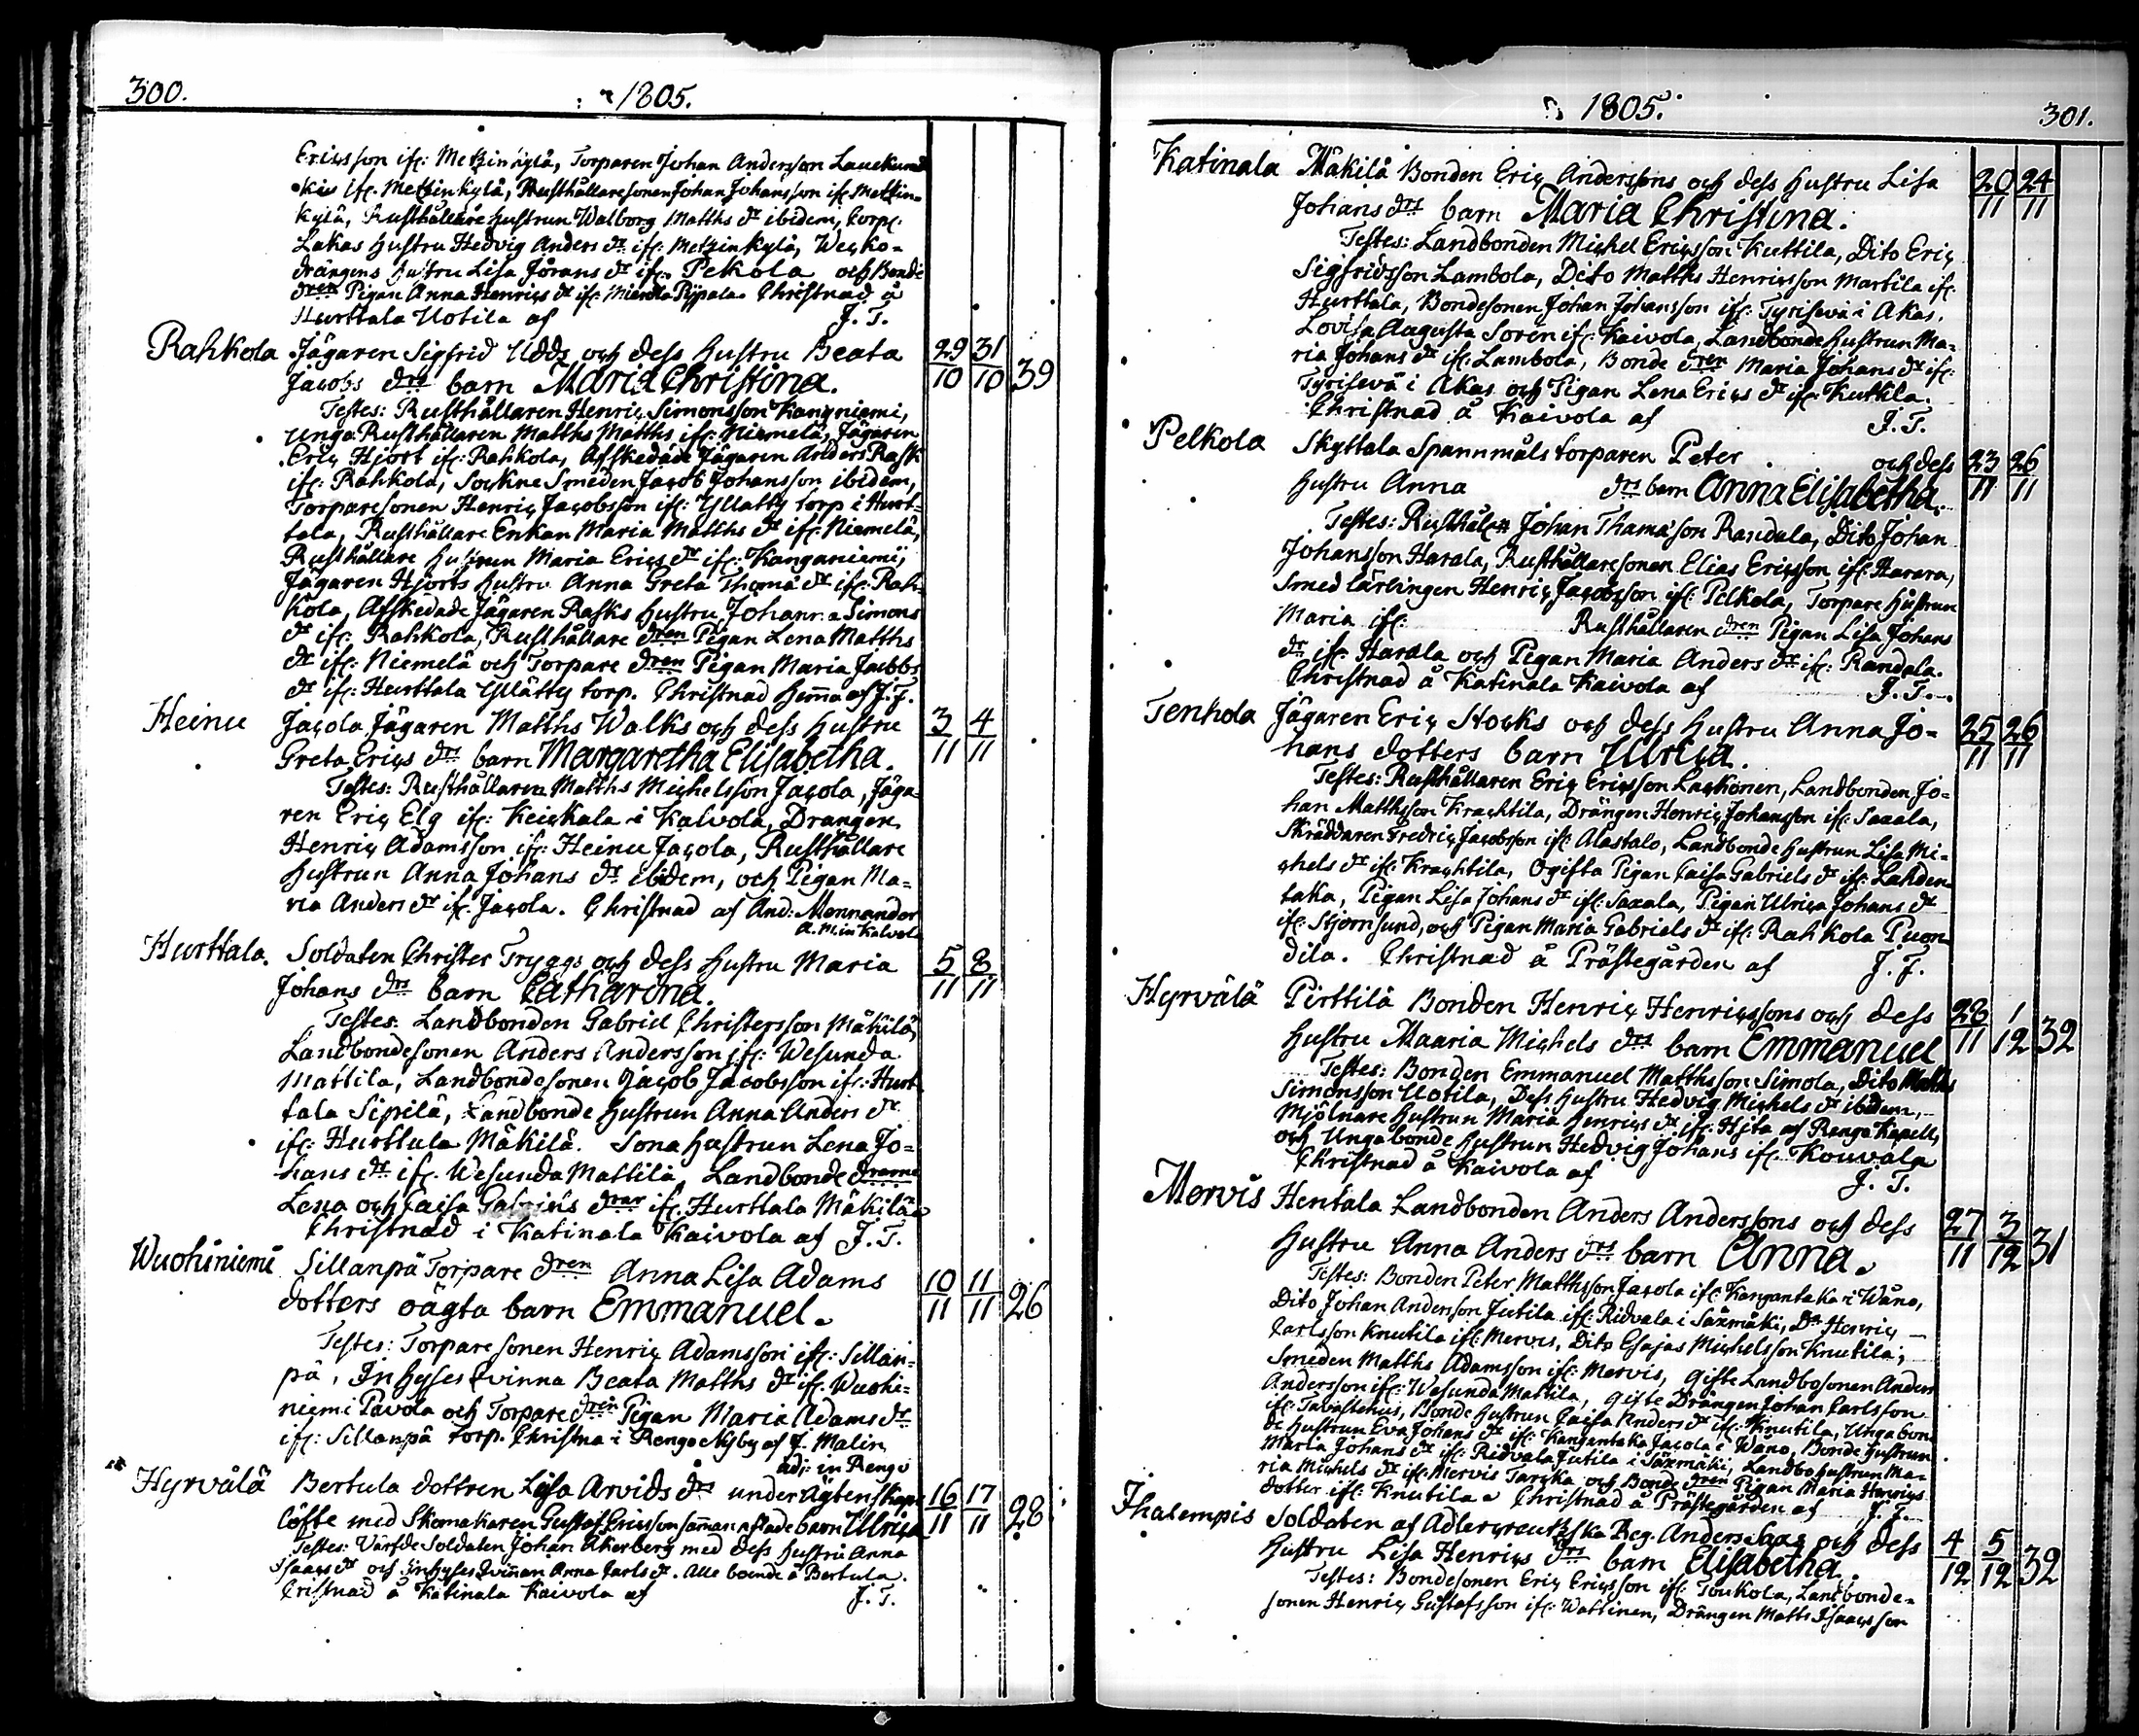 300.
1805.
Ericsson ifr: Metzinkylä, Torparen Johan Andersson
kis ifr: Metzinkylä, Rusthållaresonen Johan Johansson ifr: Metzin=
kylä, Rusthållare hustrun Walborg Matths dr ibidem, Corpr:
Lakas hustru Hedvig Anders dr ifr: Metzinkylä, Wecko=
drängens hustru Lisa Jörans dr ifr: Pekola och Bonde
dren Pigan Anna Henrics dr ifr: Christnad å
Hurttala Uotila af J. T.
Rahkola Jägaren Sigfrid Udds och dess hustru Beata 29/10 31/10 39
Jacobs drs barn Maria Christina.
Testes: Rusthållaren Henric Simonsson Kangniemi,
Unga Rusthållaren Matths Matths ifr: Niemelä, Jägaren
Eric Hjort ifr: Rahkola, Afskedade Jägaren Anders Rask
ifr: Rahkola, Sockne Smeden Jacob Johansson ibidem,
Torparesonen Henric Jacobsson ifr: Yllätty torp i Hurt=
tala, Rusthållare Enkan Maria Matths dr ifr: Niemelä,
Rusthållare hustrun Maria Erics dr ifr: Kanganiemi,
Jägaren Hjorts hustru Anna Greta Thomæ dr ifr: Rah=
kola, Afskedade Jägaren Rasks hustru Johanna Simons
dr ifr: Rahkola, Rusthållare dren Pigan Lena Matths
dr ifr: Niemelä och Torpare dren Pigan Maria Jacobs
dr ifr: Hurttala Yllätty torp. Christnad hema af J. T.
Heinu Jacola Jägaren Matths Walks och dess hustru 3/11 4/11
Greta Erics drs barn Margaretha Elisabetha.
Testes: Rusthållaren Matths Michelsson Jacola, Jäga=
ren Eric Elg ifr: Keickala i Kalvola, Drängen
Henric Adamsson ifr: Heinu Jacola, Rusthållare
hustrun Anna Johans dr ibidem, och Pigan Ma=
ria Anders dr ifr: Jacola. Christnad af And: Mennander
A. M. in Kalvola
Hurttala. Soldaten Christer Tryggs och dess hustru Maria 5/11 8/11
Johans drs barn Catharina.
Testes: Landbonden Gabriel Christersson Mäkilä,
Landbondesonen Anders Andersson ifr: Wesunda
Mattila, Landbondesonen Jacob Jacobsson ifr: Hurt
tala Sipilä, Landbonde hustrun Anna Anders dr
ifr: Hurttula Mäkilä. Sona hustrun Lena Jo=
hans dr ifr: Wesunda Mattila, Landbonde drarne
Lena och Caisa Gabriels drar ifr: Hurttala Mäkilä
Christnad i Katinala Kaivola af J. T.
Wuohiniemi Sillanpä Torpare dren Anna Lisa Adams 10/11 11/11 26
dotters oägta barn Emmanuel.
Testes: Torpare sonen Henric Adamsson ifr: Sillan=
pä, Inhyses qvinna Beata Matths dr ifr: Wuohi=
niemi Pavola och Torpare dren Pigan Maria Adams dr
ifr: Sillanpä torp. Christna i Rengo Nyby af J. Malin
adj: in Rengo
Hyrvälä Bertula dottren Lisa Arvids drs under ägtenskaps 16/11 17/11 28
löfte med Skomakaren Gustaf Ericsson samman aflade barn Ulrica
Testes: Värfde Soldaten Johan Åkerberg med dess hustru Anna
Isaacs dr och Inhyses Qvinnan Anna Carls dr. Alle boende å Bertula.
Cristnad å Katinala Kaivola af J. T.
1805.
301.
Katinala Mäkilä Bonden Eric Anderssons och dess hustru Lisa 20/11 24/11
Johans drs barn Maria Christina.
Testes: Landbonden Michel Ericsson Kuttila, Dito Eric
Sigfridsson Lambola, Dito Matths Henricsson Martila ifr:
Hurttala, Bondesonen Johan Johansson ifr: Tyrisevä i Akas.
Lovisa Augusta Soren ifr: Kaivola, Landbonde hustrun Ma=
ria Johans dr ifr: Lambola, Bonde dren Maria Johans dr ifr:
Tyrisevä i Akas och Pigan Lena Erics dr ifr: Kuttila.
Christnad å Kaivola af J. T.
Pelkola Skyttala Spannmåls torparen Peter och dess 23/11 26/11
hustru Anna drs barn Anna Elisabetha.
Testes: Rusthålen Johan Thamæson Randala, Dito Johan
Johansson Harala, Rusthållaresonen Elias Ericsson ifr: Harara,
Smed lärlingen Henric Jacobsson ifr: Pelkola, Torpare hustrun
Maria ifr: Rusthållaren dren Pigan Lisa Johans
dr ifr: Harala och Pigan Maria Anders dr ifr: Randala.
Christnad å Katinala Kaivola af J. T.
Tenhola Jägaren Eric Stocks och dess hustru Anna Jo= 25/11 26/11
hans dotters barn Ulrica.
Testes: Rusthållaren Eric Ericsson Lackonen, Landbonden Jo=
han Matthsson Krachtila, Drängen Henric Johansson ifr: Saxala,
Skräddaren Fredric Jacobsson ifr: Alastalo, Landbonde hustrun Lisa Mi=
chels dr ifr: Krachtila, Ogifta Pigan Caisa Gabriels dr ifr: Lahden=
taka, Pigan Lisa Johans dr ifr: Saxala, Pigan Ulrica Johans dr
ifr: Stjernsund, och Pigan Maria Gabriels dr ifr: Rahkola Puon
dila. Christnad å Prästegården af J. T.
Hyrvälä Pirttilä Bonden Henric Henricssons och dess 28/11 1/12 32
hustru Maaria Michels drs barn Emmanuel
Testes: Bonden Emmanuel Matthsson Simola, Dito Matths
Simonsson Uotila, Dess hustru Hedvig Michels dr ibidem,
Mjölnare hustrun Maria Henrics dr ifr: Hjta af Rengo Kapell,
och Unga bonde hustrun Hedvig Johans ifr: Kouvala
Christnad å Kaivola af J. T.
Mervis Hentala Landbonden Anders Anderssons och dess 27/11 3/12 31
hustru Anna Anders drs barn Anna.
Testes: Bonden Peter Matthsson Jacola ifr: Kangantaka i Wåno,
Dito Johan Anderson Jutila ifr: Ridvala i Säxmäki, Do Henric
Carlsson Knutila ifr: Mervis, Dito Esajas Michelsson Knutila,
Smeden Matths Adamsson ifr: Mervis, gifte Landbosonen Anders
Andersson ifr: Wesunda Mattila, gifte Drängen Johan Carlsson
ifr: Tavastehus, Bonde hustrun Caisa Anders dr ifr: Knutila, Unga bon
de hustrun Eva Johans dr ifr: Kangantaka Jacola i Wåno, Bonde hustrun
Maria Johans dr ifr: Ridvala Jutila i Säxmäki, Landbo hustrun Ma=
ria Michels dr ifr: Mervis Tarcka och Bonde dren Pigan Maria Henrics
dotter ifr: Knutila. Christnad å Prästegården af J. T.
Ihalempis Soldaten af Adlercreutzska Reg. Anders Sax och dess 4/12 5/12 32
hustru Lisa Henrics drs barn Elisabetha.
Testes: Bondesonen Eric Ericsson ifr: Toukola, Landbonde=
sonen Henric Gustafsson ifr: Wattinen, Drängen Matts Isaacsson